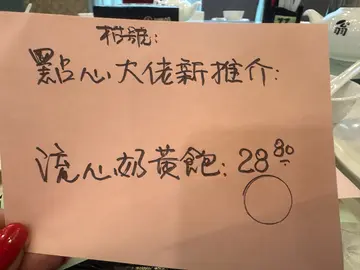 枱號:
點心大佬新推介:
流心奶黃飽: 28.80